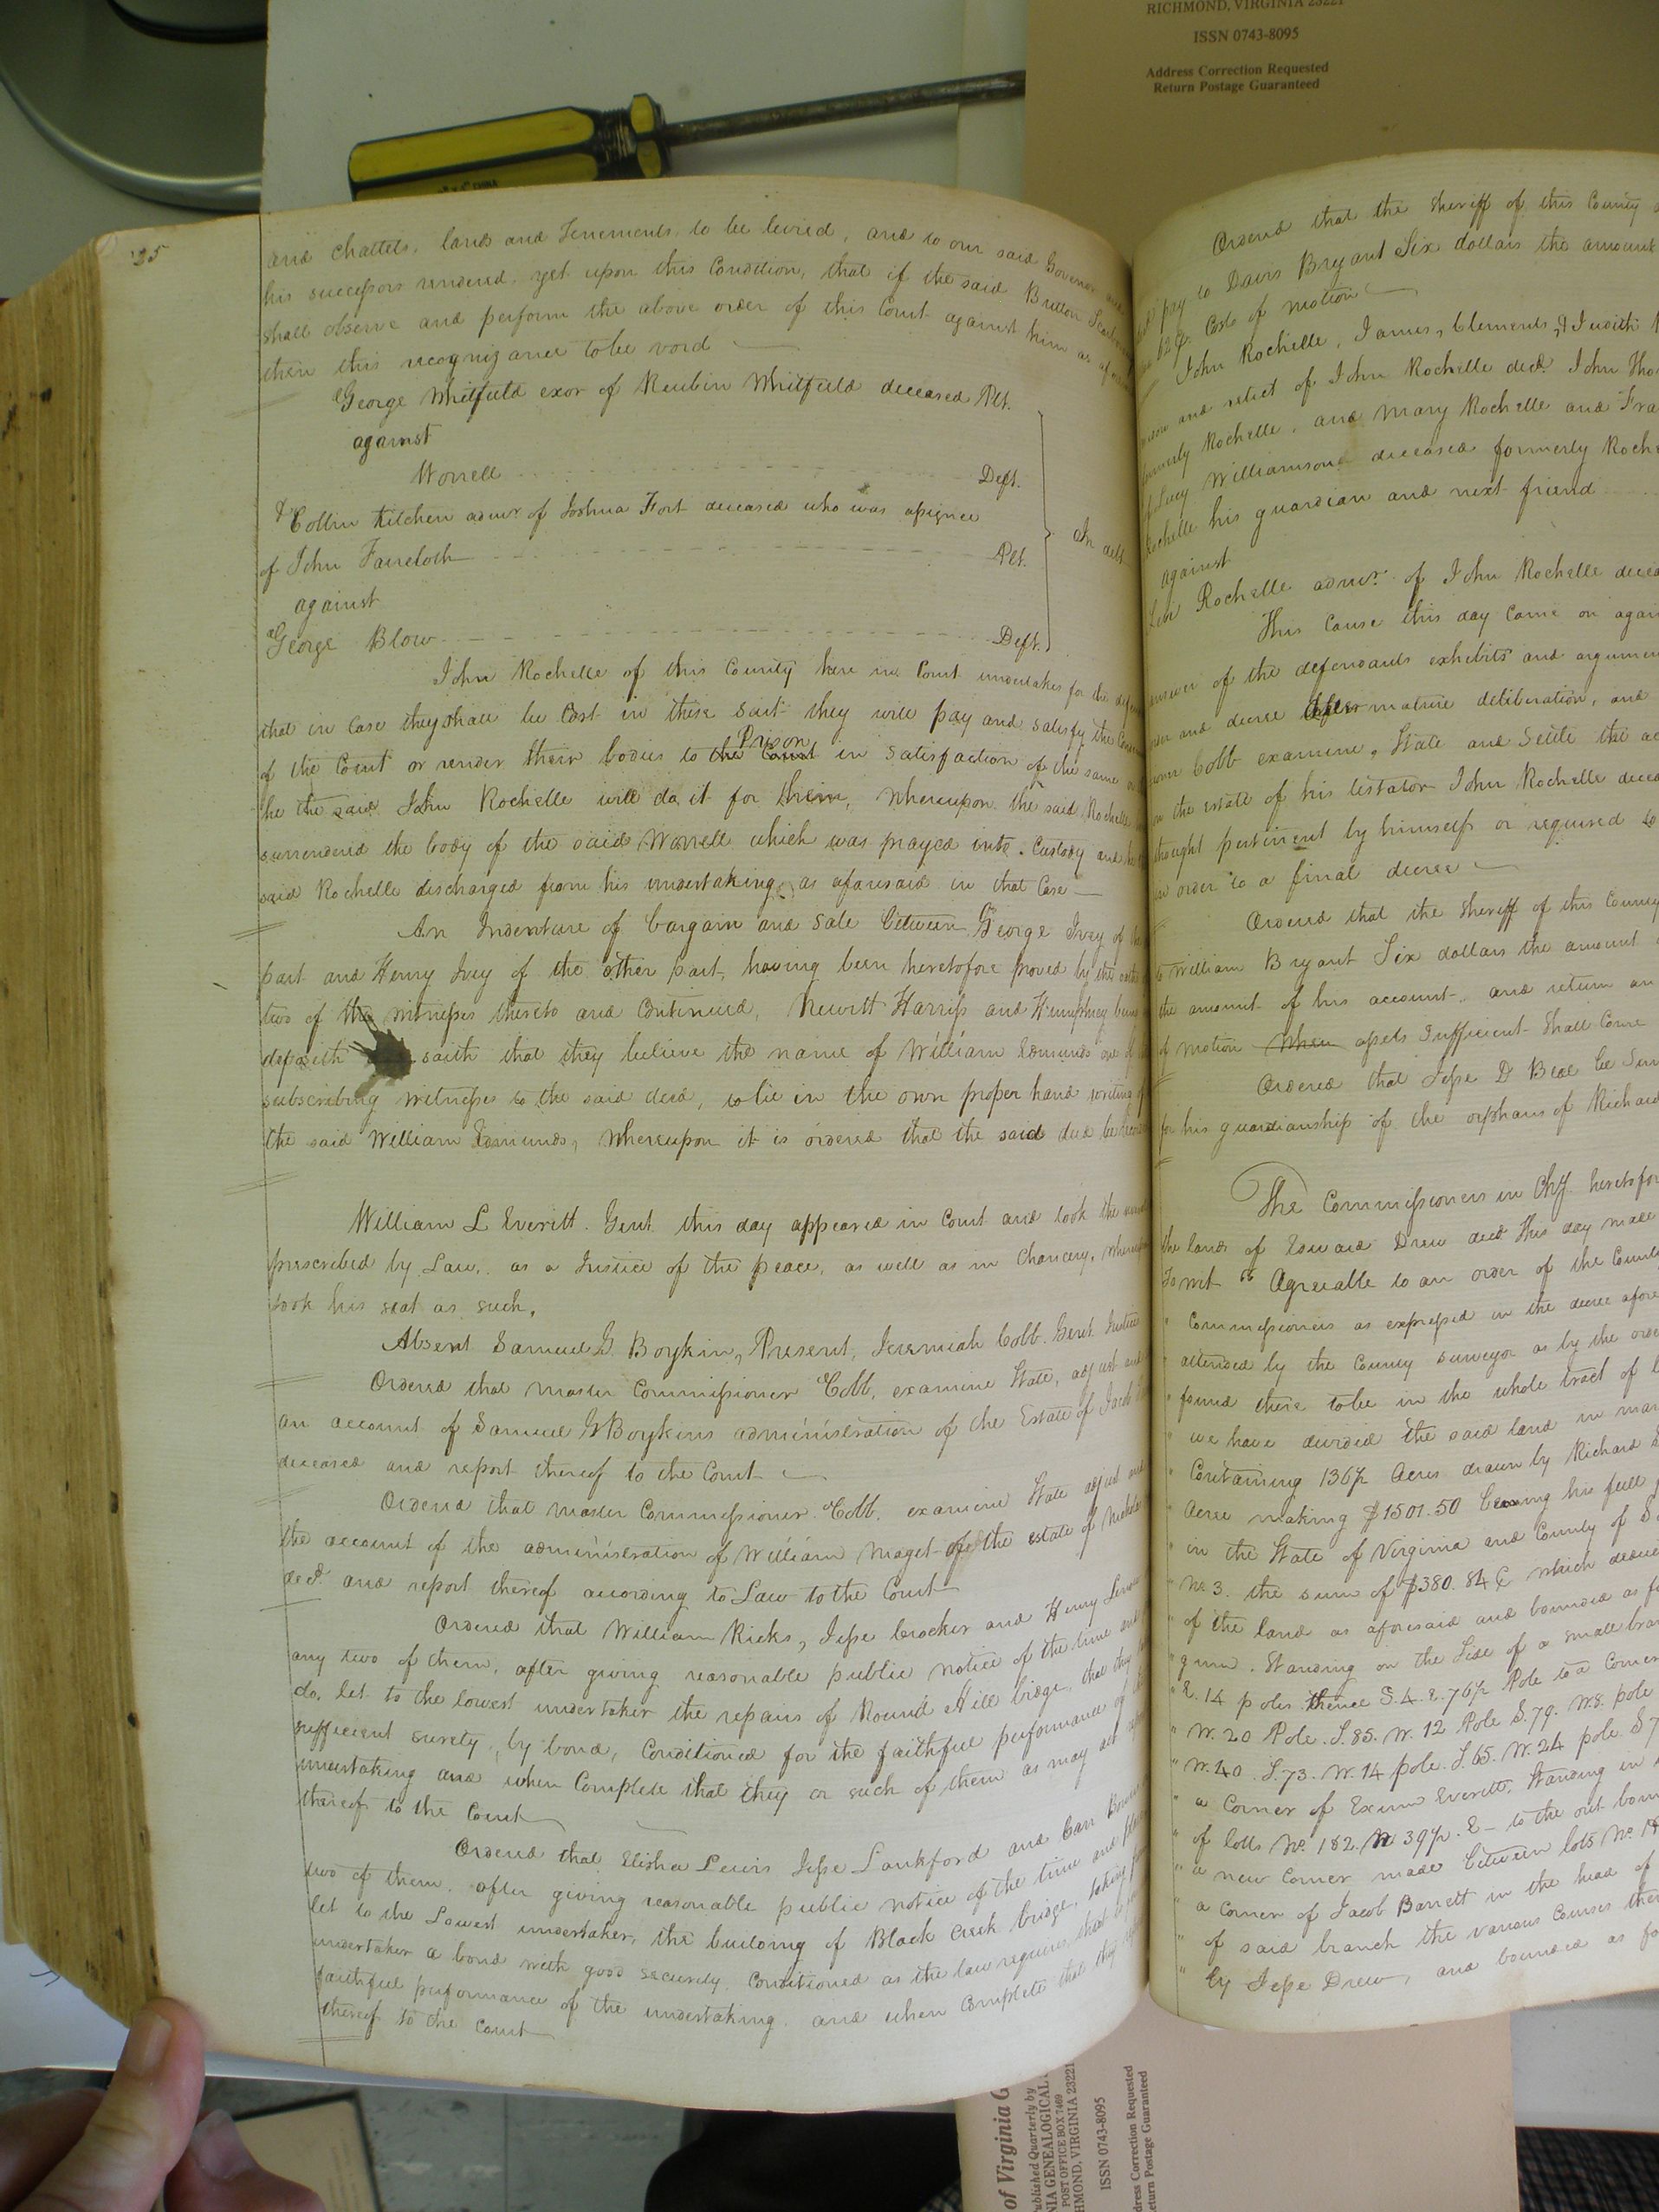 RICHMOND, VIRGINIA 23221
ISSN 0743-8095
Address Correction Requested
Return Postage Guaranteed
25
and chattels, lands and Tenements to be levied, and to our said Governor and
his successors rendered, yet upon this Condition, that if the said Britton
shall observe and perform the above order of this Court against him as
then this recognizance to be void
George Whitfield exor of Reubin Whitfield deceased Plt.
against
Worrell Deft.
& Collin Kitchen admr of Joshua Fort deceased who was assignee
of John Faircloth Plt.
against
George Blow Deft.
In debt
John Rochelle of this County here in Court undertakes for the
that in Case they shall be Cast in these suit they will pay and satisfy the
of the Court or render their bodies to the Court Prison in satisfaction of the same or
he the said John Rochelle will do it for them, Whereupon the said Rochelle
surrendered the body of the said Worrell which was prayed into Custody and the
said Rochelle discharged from his undertaking as aforesaid in that Case
An Indenture of bargain and sale between George Ivey of the
part and Henry Ivey of the other part, having been heretofore proved by the oaths
two of the witnesses thereto and Continued, Newitt Harriss and Humphrey
deposeth saith that they believe the name of William Edmunds one of
subscribing witnesses to the said deed, to be in the own proper hand writing of
the said William Edmunds, Whereupon it is ordered that the said deed be
William L Everitt. Gent. this day appeared in Court and took the
prescribed by Law, as a Justice of the peace, as well as in Chancery,
took his seat as such.
Absent Samuel G. Boykin, Present, Jeremiah Cobb. Gent. Justice
Ordered that master Commissioner Cobb, examine State, adjust and
an account of Samuel G Boykins administration of the Estate of Jacob
deceased and report thereof to the Court
Ordered that master Commissioner Cobb, examine State adjust and
the account of the administration of William Maget of the estate of
decd. and report thereof according to Law to the Court
Ordered that William Ricks, Jesse Crocker and Henry
any two of them, after giving reasonable public notice of the time and
do, let to the lowest undertaker the repairs of Round Hill bridge, that they
sufficient surety, by bond, Conditioned for the faithful performance of
undertaking and when Complete that they or such of them as may act
thereof to the Court
Ordered that Elisha Lewis Jesse Lankford and
two of them, after giving reasonable public notice of the time and place
let to the Lowest undertaker, the building of Black Creek bridge, taking from
undertaker a bond with good security Conditioned as the law requires,
faithful performance of the undertaking, and when Complete that they
thereof to the Court
Ordered that the Sheriff of this County
pay to Davis Bryant Six dollars the amount
Cost of motion
John Rochelle, James, Clements, & Judith
and relict of John Rochelle decd. John
formerly Rochelle, and Mary Rochelle and
Lucy Williamson deceased formerly
Rochelle his guardian and next friend
against
Rochelle admr. of John Rochelle
This Cause this day Came on
answer of the defendants exhibits and
and decree after mature deliberation, and
Cobb examine, State and Settle the
on the estate of his testator John Rochelle
thought pertinent by himself or required to
in order to a final decree
Ordered that the Sheriff of this County
to William Bryant Six dollars the amount
the amount of his account, and return an
of motion When assets Sufficient Shall Come
Ordered that Jesse D Beal be
for his guardianship of the orphans of
The Commissioners in Chy. heretofore
the lands of Edward Drew decd this day made
To wit " Agreeable to an order of the County
" Commissioners as expressed in the decree
" attended by the County surveyor as by the
" found there to be in the whole tract of
" we have divided the said land in
" Containing 136½ Acres drawn by Richard
" Acre making $1501.50 being his full
" in the State of Virginia and County of
" No 3. the sum of $380.84 C which
" of the land as aforesaid and bounded as
" gum. Standing on the Side of a small
" E. 14 poles thence S.4.E.76½ Pole to a Corner
" W. 20 Pole. S.85. W. 12 Pole S.79. W.8. pole
" W.40. S.73. W.14 pole. S.65. W.24 pole
" a Corner of Exum Everett, Standing in
" of lotts No. 1&2. N 39½. E to the out
" a new Corner made between lots No. 1&
" a Corner of Jacob Barrett in the head of
" of said branch the various Courses
" by Jesse Drew, and bounded as
of Virginia
Published Quarterly by
GENEALOGICAL
POST OFFICE BOX 7469
RICHMOND, VIRGINIA 23221
ISSN 0743-8095
Address Correction Requested
Return Postage Guaranteed